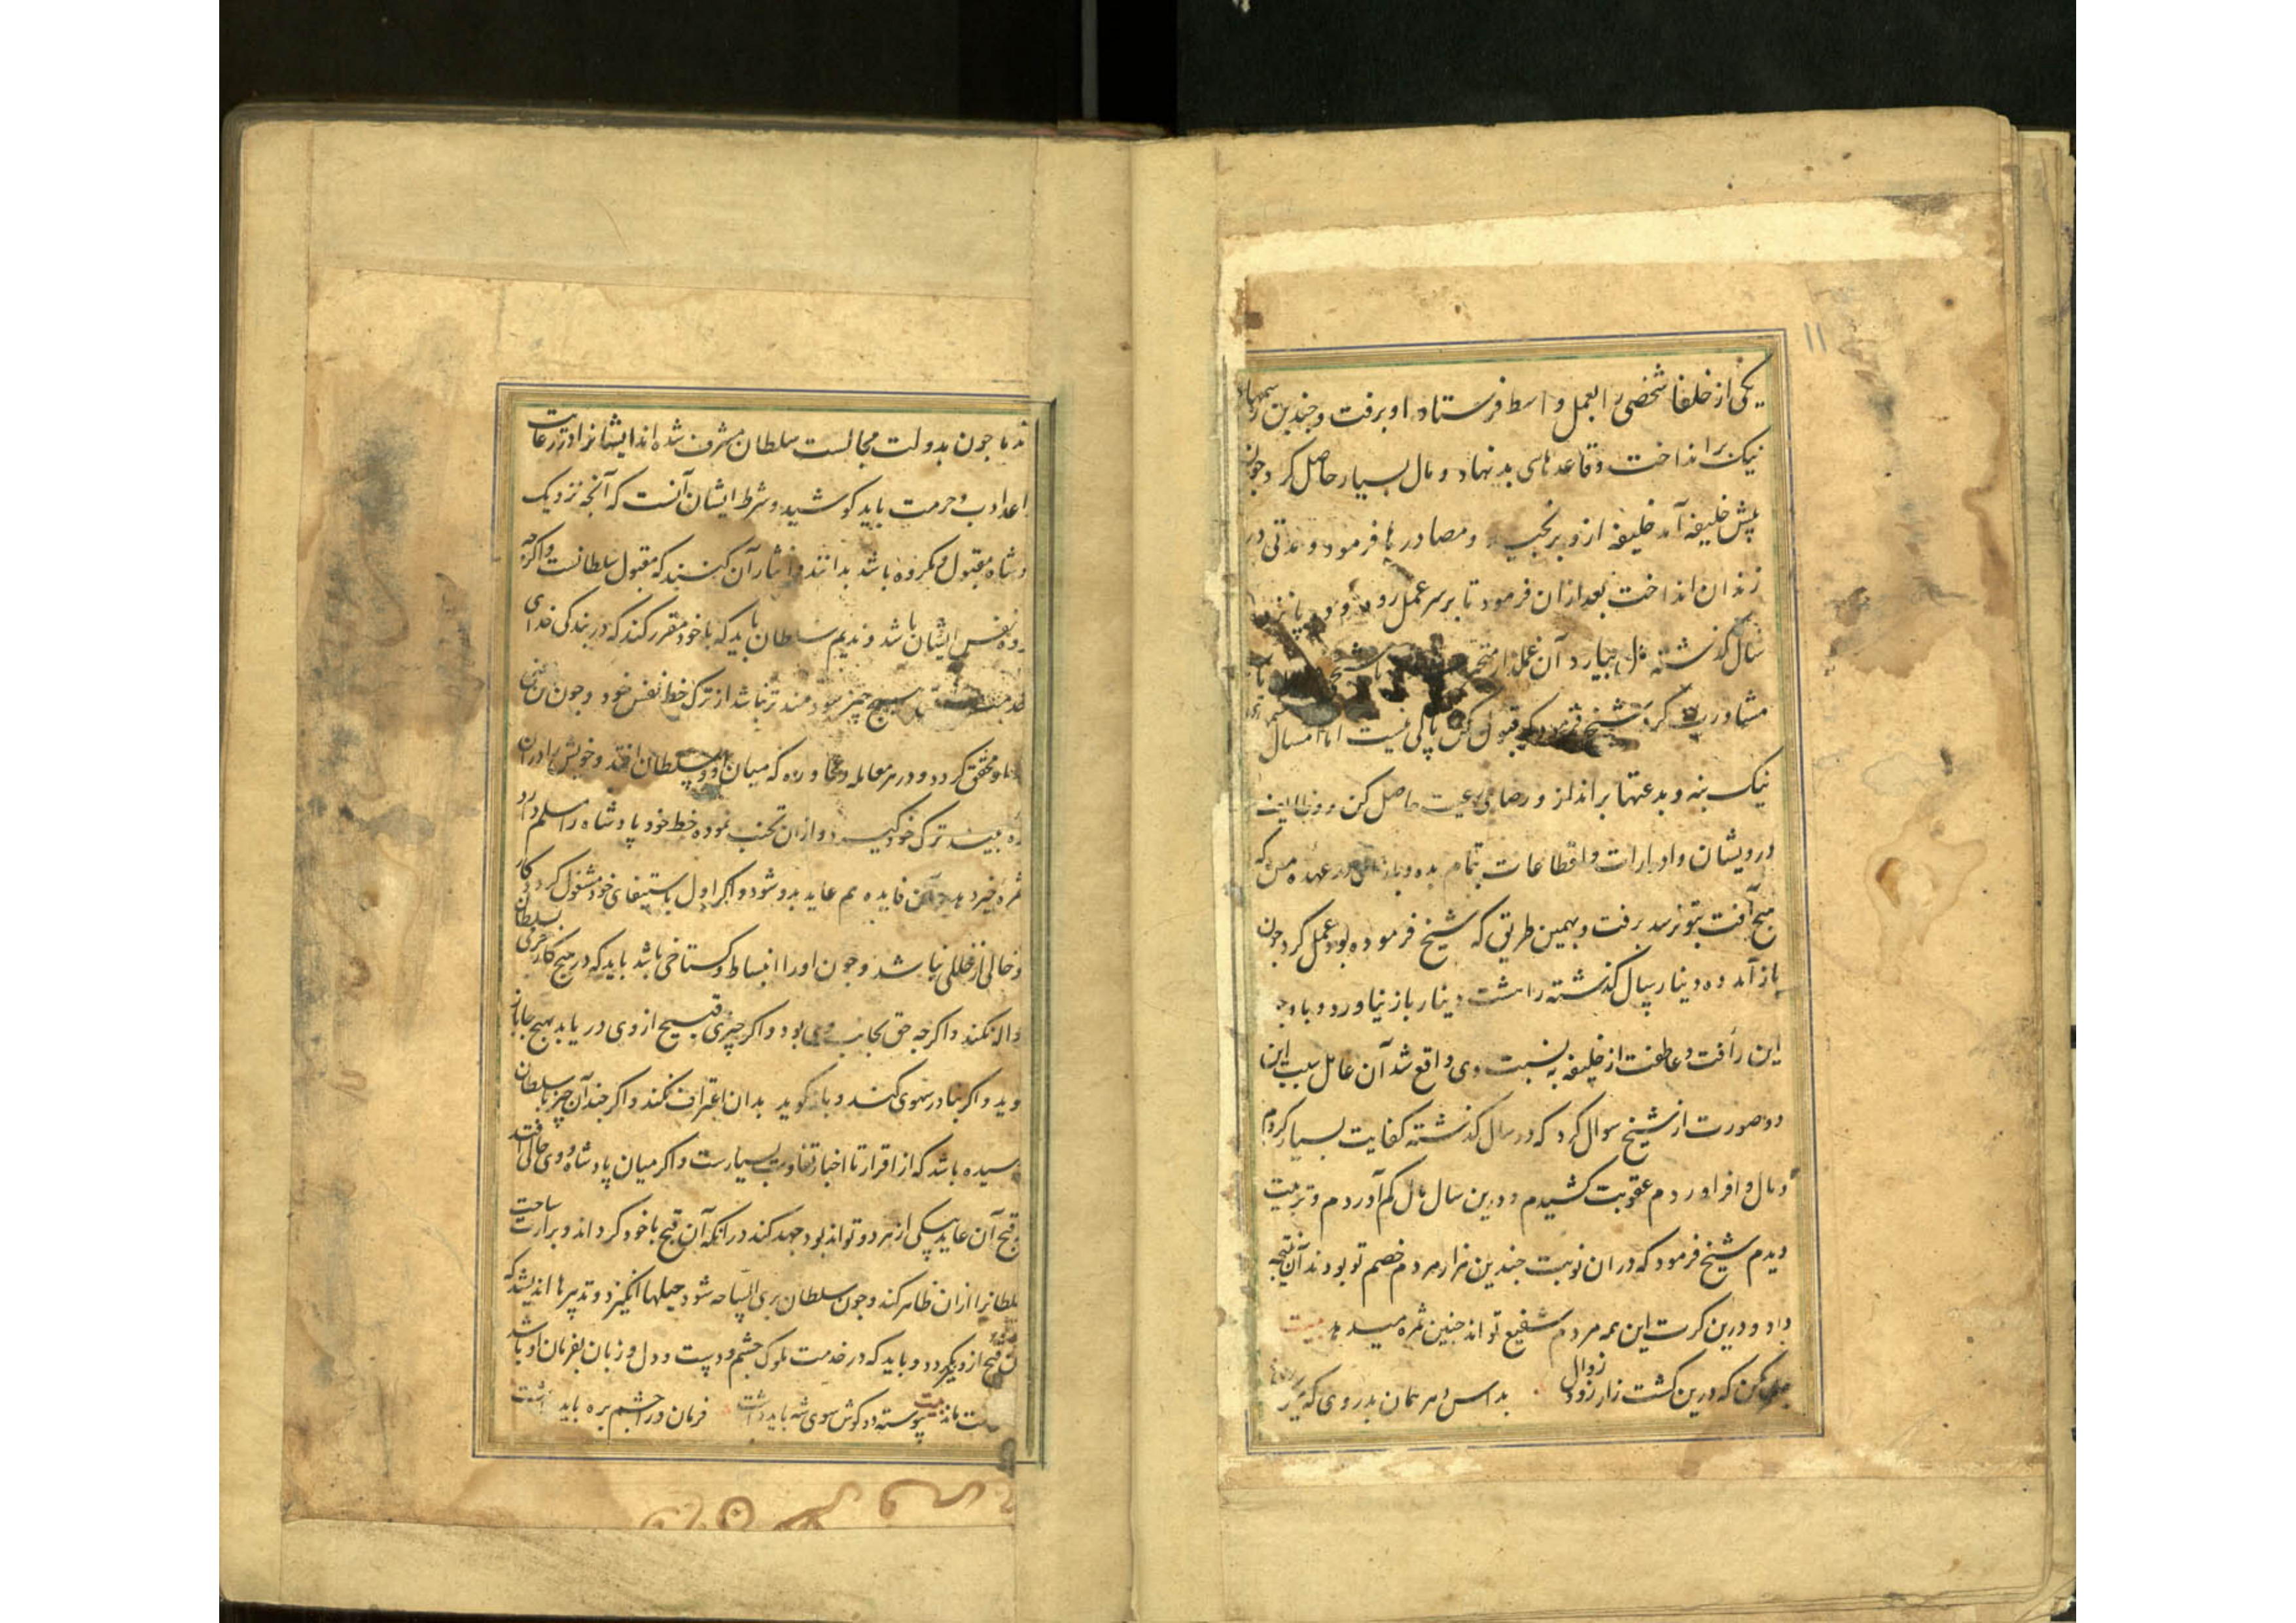 ۱۱
یکی از خلفا شخصی را بعمل واسط فرستاد او برفت و چندین رسمهاء
نیک برانداخت و قاعدهای بد نهاد و مال بسیار حاصل کرد چون
پیش خلیفه آمد خلیفه ازو برنجید و مصادرها فرمود و مدتی در
زندان انداخت بعد ازان فرمود تا بر سر عمل رود و
سال گذشته مال بیارد آن عملدار متحیر با شیخ
مشاورت کرد شیخ فرمود که قبول کن باکی نیست اما امسال
نیک بنه و بدعتها برانداز و رضای رعیت حاصل کن
درویشان و ادرارات و اقطاعات تمام بده و در عهده من که
هیچ آفت بتو نرسد برفت و بهمین طریق که شیخ فرموده بود عمل کرد چون
باز آمد ده دینار سال گذشته را هشت دینار باز نیاورد و با وجود
این رأفت و عاطفت از خلیفه به نسبت وی واقع شد آن عامل سبب این
دو صورت از شیخ سوال کرد که در سال گذشته کفایت بسیار کردم
و مال وافر اوردم عقوبت کشیدم و درین سال مال کم آوردم و تربیت
دیدم شیخ فرمود که دران نوبت چندین هزار مردم خصم تو بودند آن نتیجه
داد و درین کرت این همه مردم شفیع تواند چنین ثمره میدهد بیت
مکن که درین کشت زار زود زوال بداس دهر همان بدروی که
ندما چون بدولت مجالست سلطان مشرف شده اند ایشانرا در رعایت
قواعد ادب و حرمت باید کوشید و شرط ایشان آنست که آنچه نزدیک
پادشاه مقبول و مکروه باشد بدانند و ایثار آن کنند که مقبول سلطانست و اگرچه
مکروه نفس ایشان باشد و ندیم سلطان باید که با خود مقرر کند که در بندگی خدای
هیچ چیز سودمند تر نباشد از ترک حظ نفس خود و چون این معنی
محقق گردد و در هر معامله و محاوره که میان او و سلطان افتد و خویش را دران
بیند ترک خود گیرد و ازان تجنب نموده حظ خود پادشاه را مسلم دارد
ثمره خیر دهد و آن فایده هم عاید بدو شود و اگر اول باستیفای خود مشغول گردد کار
و خالی از خللی نباشد و چون او را انبساط و گستاخی باشد باید که در هیچ کار بسلطان
حواله نکند و اگرچه حق بجانب وی بود و اگر چیزی قبیح از وی در یابد بهیچ جا باز
نگوید و اگر بنادر سهوی کند و باز گوید بدان اعتراف نکند و اگر چند آن چیز بسلطان
رسیده باشد که از اقرار تا اخبار تفاوت بسیارست و اگر میان پادشاه و وی حالی افتد
که قبح آن عاید بیکی از هر دو تواند بود جهد کند در آنکه آن قبح با خود گرداند و براءت ساحت
سلطانرا ازان ظاهر کند و چون سلطان بری الساحه شود حیلها انگیزد و تدبیرها اندیشد که
آن قبح ازو بگردد و باید که در خدمت ملوک چشم و دست و دل و زبان بفرمان او باشد
بیت پیوسته دو گوش سوی شه باید داشت فرمان ورا چشم بره باید داشت